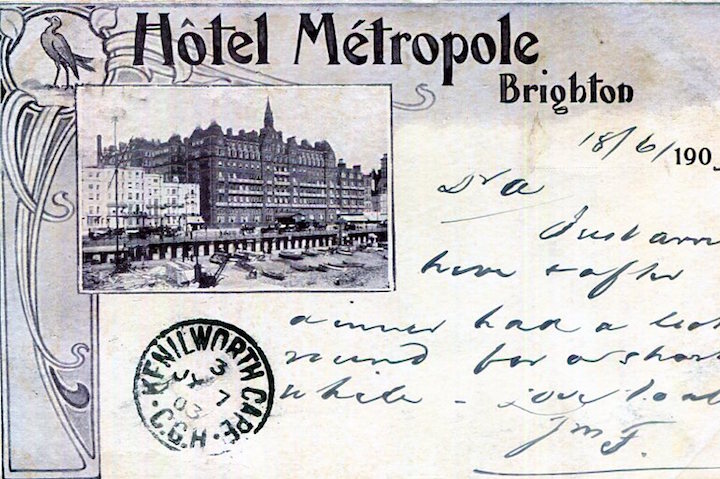 Hôtel Métropole
Brighton
18/6/190
Dr A
Just arri
here & after
dinner had a look
round for a short
while - love to all
JMF.
KENILWORTH CAPE
3
JY 7
03
C.G.H